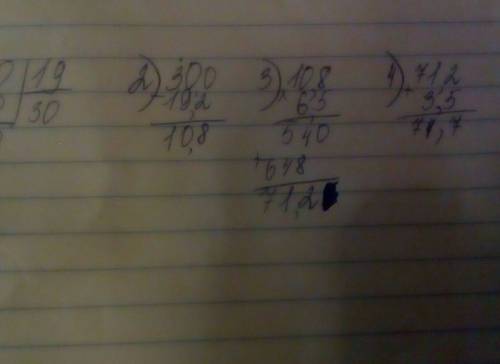 19
30
2) 30,0
- 19,2
10,8
3) 10,8
× 6,5
540
+ 648
71,2
4) 71,2
+ 3,5
71,7